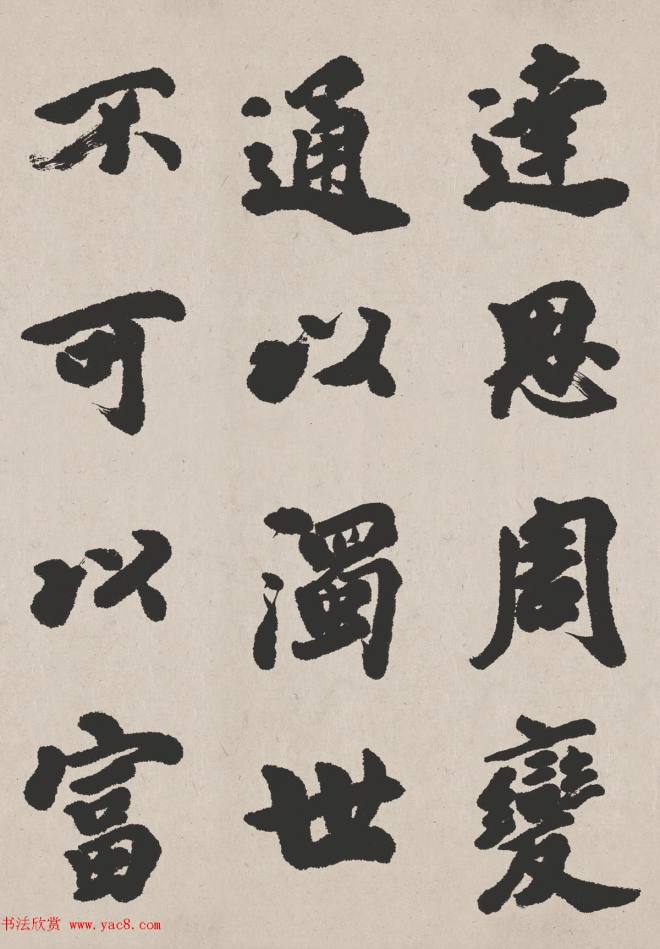 達思周變
通以濁世
不可以富
书法欣赏 www.yac8.com